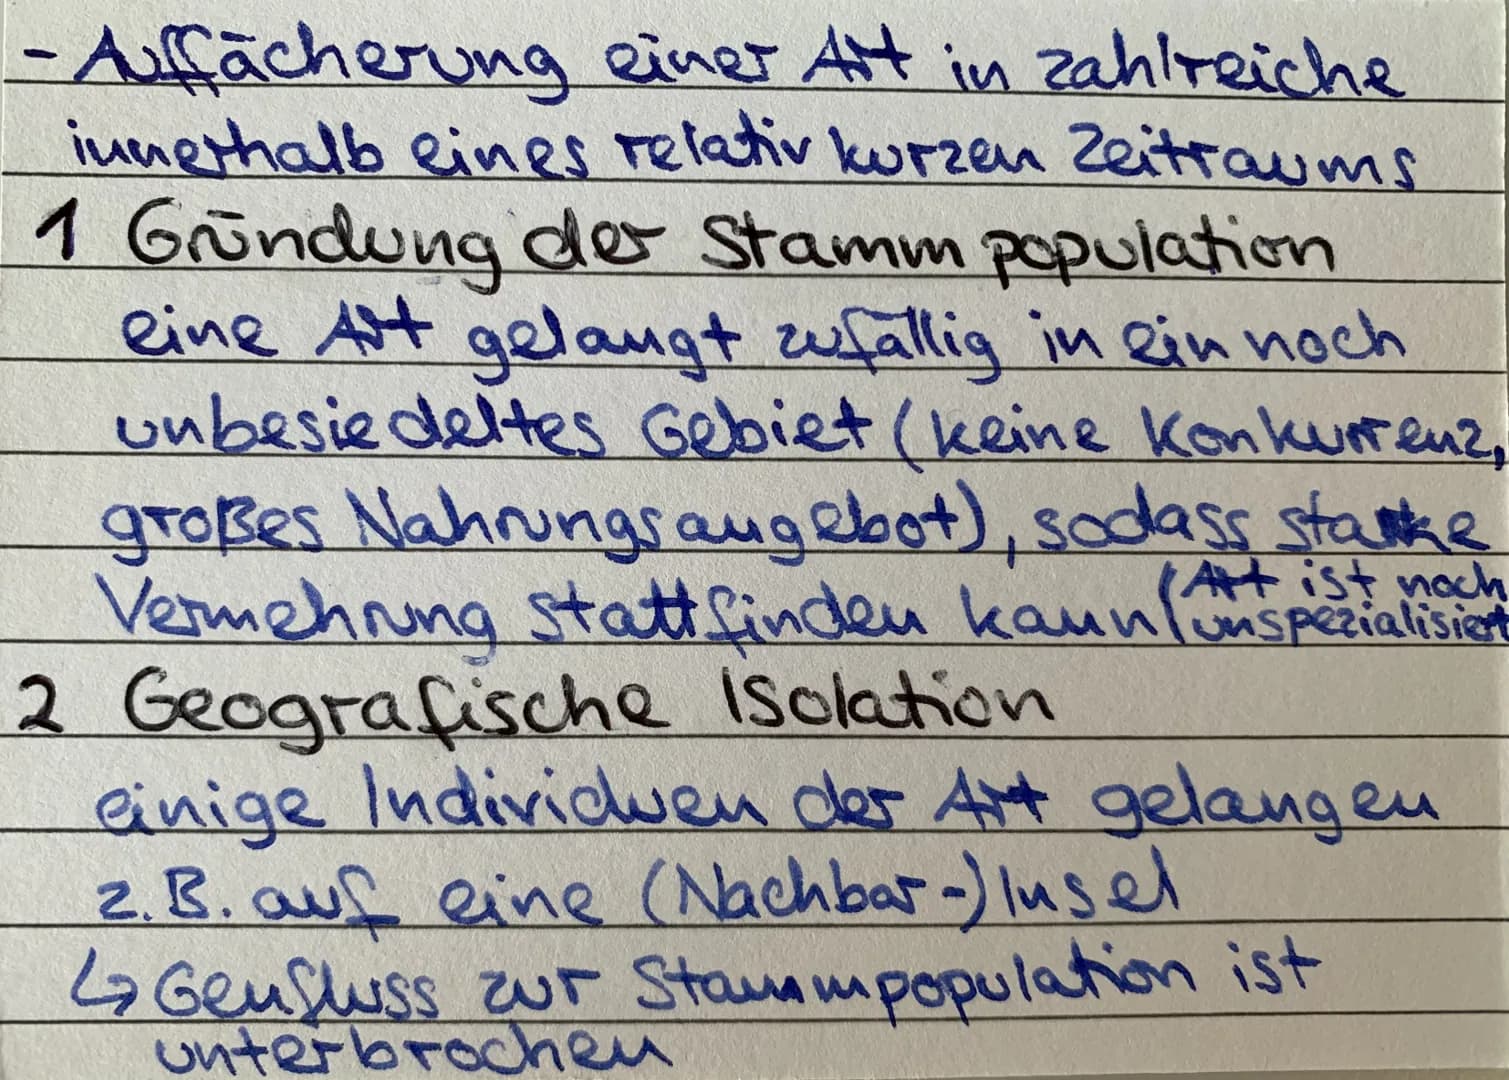 - Auffächerung einer Art in zahlreiche
innerhalb eines relativ kurzen Zeitraums
1 Gründung der Stammpopulation
eine Art gelangt zufällig in ein noch
unbesiedeltes Gebiet (keine Konkurrenz,
großes Nahrungsangebot), sodass starke
Vermehrung stattfinden kann (Art ist noch
unspezialisiert
2 Geografische Isolation
einige Individuen der Art gelangen
z.B. auf eine (Nachbar-)Insel
↳ Genfluss zur Stammpopulation ist
unterbrochen